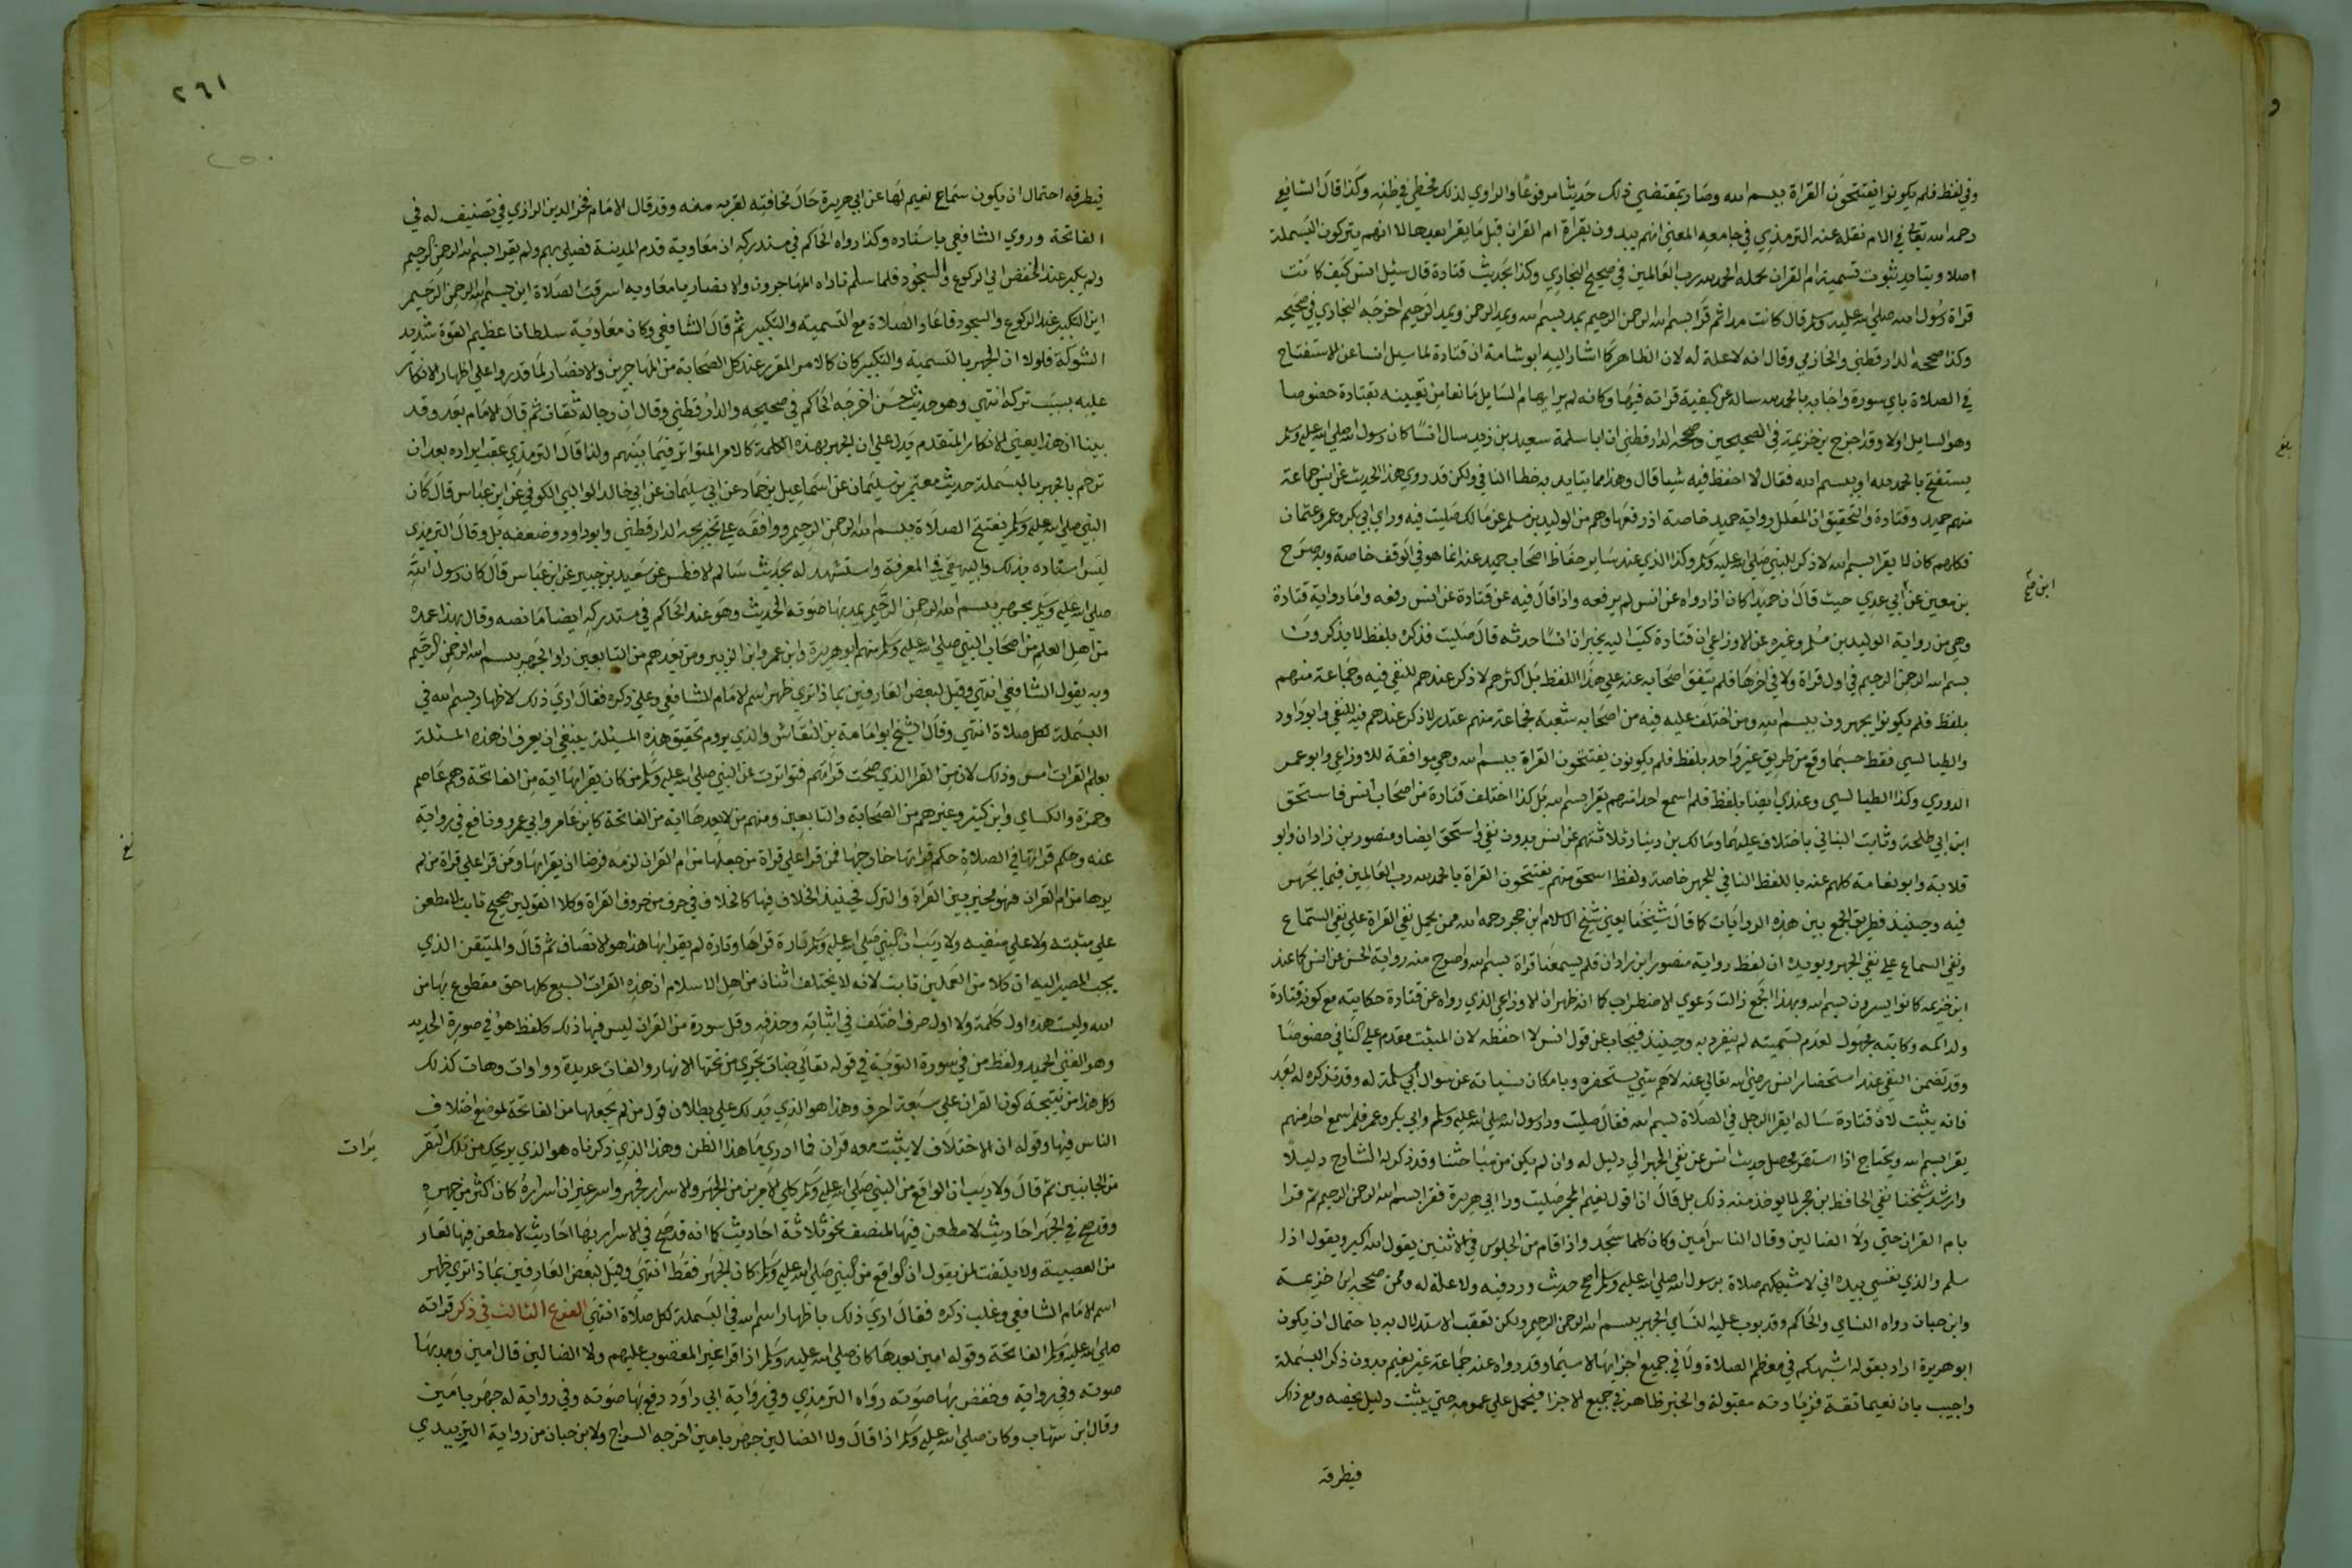 وفي لفظ فلم يكونوا يفتتحون القراة ببسم الله وصار بمقتضي ذلك حديثا مرفوعا والراوي لذلك مخطي في ظنه وكذا قال الشافعي
رحمه الله تعالي في الام نقله عنه الترمذي في جامعه المعني انهم يبدون بقراة ام القران قبل ما يقرا بعدها لا انهم يتركون البسملة
اصلا ويتايد بثبوت تسمية ام القران بجملة الحمد لله رب العالمين في صحيح البخاري وكذا بحديث قتادة قال سئل انس كيف كانت
قراة رسول الله صلي الله عليه وسلم قال كانت مدا ثم قرا بسم الله الرحمن الرحيم يمد بسم الله ويمد الرحمن ويمد الرحيم اخرجه البخاري في صحيحه
وكذا صححه الدارقطني والحازمي وقال انه لا علة له لان الظاهر كما اشار اليه ابو شامة ان قتادة لما سيل انسا عن الاستفتاح
في الصلاة باي سورة واجابه بالحمد لله ساله عن كيفية قراته فيها وكانه لم ير ابهام السايل مانعا من تعيينه بقتادة خصوصا
وهو السايل اولا وقد اخرج بن خزيمة في الصحيحين وصححه الدارقطني ان ابا سلمة سعيد بن زيد سال انسا كان رسول الله صلي الله عليه وسلم
يستفتح بالحمد لله او ببسم الله فقال لا احفظ فيه شيا قال وهذا مما يتايد به خطا النافي ولكن قد روي هذا الحديث عن انس جماعة
منهم حميد وقتادة والتحقيق ان المعلل رواية حميد خاصة اذ رفعها وهم من الوليد بن مسلم عن مالك صليت فيه وراي ابي بكر وعمر وعثمان
فكلهم كان لا يقرا بسم الله لا ذكر للنبي صلي الله عليه وسلم وكذا الذي عند ساير حفاظ اصحاب حميد عنه انما هو في الوقف خاصة وبه صرح
ابن معين
بن معين عن ابي عدي حيث قال ان حميدا كان اذا رواه عن انس لم يرفعه واذا قال فيه عن قتادة عن انس رفعه واما رواية قتادة
وهي من رواية الوليد بن مسلم وغيره عن الاوزاعي ان قتادة كتب اليه يخبر ان انسا حدثه قال صليت فذكره بلفظ لا يذكرون
بسم الله الرحمن الرحيم في اول قراة ولا في اخرها فلم يتفق اصحابه عنه علي هذا اللفظ بل اكثرهم لا ذكر عندهم للنفي فيه وجماعة منهم
بلفظ فلم يكونوا يجهرون ببسم الله ومن اختلف عليه فيه من اصحابه شعبة فجماعة منهم غندر لا ذكر عندهم فيه للنفي وابو داود
والطيالسي فقط حسبما وقع من طريق غير واحد بلفظ فلم يكونون يفتتحون القراة ببسم الله وهي موافقة للاوزاعي وابو عمر
الدوري وكذا الطيالسي وعندي ايضا بلفظ فلم اسمع احدا منهم يقرا بسم الله بل كذا اختلف قتادة من اصحاب انس فاسحق
ابن ابي طلحة وثابت البناني باختلاف عليهما ومالك بن دينار ثلاثتهم عن انس بدون نفي واسحق ايضا ومنصور بن زاذان وابو
قلابة وابو نعامة كلهم عنه باللفظ النافي للجهر خاصة ولفظ اسحق منهم يفتتحون القراة بالحمد لله رب العالمين فيما يجهر
فيه وحينيذ فطريق الجمع بين هذه الروايات كما قال شيخنا يعني شيخ الاسلام ابن حجر رحمه الله ممن يحمل نفي القراة علي نفي السماع
ونفي السماع علي نفي الجهر ويويده ان لفظ رواية منصور ابن زاذان فلم يسمعنا قراة بسم الله واصرح منه رواية الحسن عن انس كما عند
ابن خزيمه كانوا يسرون بسم الله وبهذا الجمع زالت دعوي الاضطراب كما انه ظهر ان الاوزاعي الذي رواه عن قتادة حكايته مع كون قتادة
ولد اكمه وكاتبه مجهول لعدم تسميته لم ينفرد به وحينيذ فيجاب عن قول انس لا احفظه لان المثبت مقدم علي النافي خصوصا
وقد تضمن النفي عند استحضار انس رضي الله تعالي عنه لاهم شي يستحضره وبامكان نسيانه عن سوال ابي سلمة له وقد تذكره له بعد
فانه يثبت لان قتادة ساله ايقرا الرجل في الصلاة بسم الله فقال صليت ورا رسول الله صلي الله عليه وسلم وابي بكر وعمر فلم اسمع احدا منهم
يقرا بسم الله ويحتاج اذا استقر محصل حديث انس عن نفي الجهر الي دليل له وان لم يكن من مباحثنا وقد ذكر له الشارح دليلا
وارشد شيخنا نفي الحافظ بن حجر لما يوخذ منه ذلك بل قال ان اقول نعيم المجمر صليت ورا ابي هريرة فقرا بسم الله الرحمن الرحيم ثم قرا
بام القران حتي ولا الضالين وقال الناس امين وكان كلما سجد واذا قام من الجلوس في الاثنين يقول الله اكبر ويقول اذا
سلم والذي نفسي بيده اني لاشبهكم صلاة برسول الله صلي الله عليه وسلم اصح حديث ورد فيه ولا علة له وممن صححه ابن خزيمة
وابن حبان رواه النساي والحاكم وقد بوب عليه النساي الجهر ببسم الله الرحمن الرحيم ولكن تعقب الاستدلال به باحتمال ان يكون
ابو هريرة اراد بقوله اشبهكم في معظم الصلاة ولا في جميع اجزايها لا سيما وقد رواه عنه جماعة غير نعيم بدون ذكر البسملة
واجيب بان نعيما ثقة فزيادته مقبولة والخبر ظاهر في جميع الاجزا فيحمل علي عمومه حتي يثبت دليل يخصه ومع ذلك
فيطرقه
٢٦١
٢٥٠
فيطرقه احتمال ان يكون سماع نعيم لها عن ابي هريرة حال مخافتته لقربه منه وقد قال الامام فخر الدين الرازي في تصنيف له في
الفاتحة وروي الشافعي باسناده وكذا رواه الحاكم في مستدركه ان معاوية قدم المدينة فصلي بهم ولم يقرا بسم الله الرحمن الرحيم
ولم يكبر عند الخفض الي الركوع والسجود فلما سلم ناداه المهاجرون والانصار يا معاويه اسرقت الصلاة اين بسم الله الرحمن الرحيم
اين التكبير عند الركوع والسجود فاعاد الصلاة مع التسميه والتكبير ثم قال الشافعي وكان معاوية سلطانا عظيم القوة شديد
الشوكة فلولا ان الجهر بالتسميه والتكبير كان كالامر المقرر عند كل الصحابة من المهاجرين والانصار لما قدروا علي اظهار الانكار
عليه بسبب تركه انتهي وهو حديث حسن اخرجه الحاكم في صحيحه والدارقطني وقال ان رجاله ثقات ثم قال الامام بعد وقد
بينا ان هذا يعني الانكار المتقدم يدل علي ان الجهر بهذه الكلمة كالامر المتواتر فيما بينهم ولذا قال الترمذي عقب ايراده بعد ان
ترجم بالجهر بالبسملة حديث معتمر بن سليمان عن اسماعيل بن حماد عن ابي سليمان عن ابي خالد الوالبي الكوفي عن ابن عباس قال كان
النبي صلي الله عليه وسلم يفتتح الصلاة ببسم الله الرحمن الرحيم ووافقه علي تخريجه الدارقطني وابو داود وضعفه بل وقال الترمذي
ليس اسناده بذلك والبيهقي في المعرفة واستشهد له بحديث سالم الافطس عن سعيد بن جبير عن ابن عباس قال كان رسول الله
صلي الله عليه وسلم يجهر ببسم الله الرحمن الرحيم يمد بها صوته الحديث وهو عند الحاكم في مستدركه ايضا ما نصه وقال بهذا عمده
من اهل العلم من اصحاب النبي صلي الله عليه وسلم منهم ابو هريرة وابن عمر وابن الزبير ومن بعدهم من التابعين راوا الجهر ببسم الله الرحمن الرحيم
وبه يقول الشافعي انتهي وقيل لبعض العارفين بما ذا تري ظهر اسم الامام الشافعي وعلي ذكره فقال اري ذلك لاظهار بسم الله في
البسملة لكل صلاة انتهي وقال الشيخ ابو امامة بن النقاش والذي يروم تحقيق هذه المسئلة ينبغي ان يعرف ان هذه المسئلة
بعلم القرات امس وذلك لان من القرا الذي صحت قراتهم فتواترت عن النبي صلي الله عليه وسلم من كان يقرا بها اية من الفاتحة وهم عاصم
وحمزة والكساي وابن كثير وغيرهم من الصحابة والتابعين ومنهم من لا يعدها اية من الفاتحة كابن عامر وابي عمرو ونافع في رواية
عنه وحكم قراتها في الصلاة حكم قراتها خارجها فمن قرا علي قراة من جعلها من ام القران لزمه فرضا ان يقرا بها ومن قرا علي قراة من لم
يرها من ام القران فهو مخير بين القراة والترك فحينيذ الخلاف فيها كالخلاف في حرف من حروف القراة وكلا القولين صحيح ثابت لا مطعن
علي مثبته ولا علي منفيه ولا ريب ان النبي صلي الله عليه وسلم تارة قراها وتارة لم يقرا بها هذا هو الانصاف ثم قال والمتيقن الذي
يجب المصير اليه ان كلا من العملين ثابت لانه لا يختلف اثنان من اهل الاسلام ان هذه القرات السبع كلها حق مقطوع بها من
الله وليست هذه اول كلمة ولا اول حرف اختلف في اثباته وحذفه وقل سورة من القران ليس فيها ذلك كلفظ هو في صورة الحديد
وهو الغني الحميد ولفظ من في سورة التوبة في قوله تعالي جنات تجري من تحتها الانهار والفات عديدة وواوات وهات كذلك
وكل هذا من نتيجة كون القران علي سبعة احرف وهذا هو الذي يدلك علي بطلان قول من لم يجعلها من الفاتحة لموضع اختلاف
الناس فيها وقوله ان الاختلاف لا يثبت معه قران فما ادري ما هذا الظن وهذا الذي ذكرناه هو الذي يريحك من تلك التقر
يرات
من الجانبين ثم قال ولا ريب ان الواقع من النبي صلي الله عليه وسلم كلي الامرين من الجهر والاسرار فجهر واسر غير ان اسراره كان اكثر من جهره
وقد صح في الجهر احاديث لا مطعن فيها لمنصف نحو ثلاثة احاديث كما انه قد صح في الاسرار بها احاديث لا مطعن فيها لعار
من العصبية ولا يلتفت لمن يقول ان الواقع من النبي صلي الله عليه وسلم كان الجهر فقط انتهي وقيل لبعض العارفين بما ذا تري ظهر
اسم الامام الشافعي وغلب ذكره فقال اري ذلك باظهار اسم الله في البسملة لكل صلاة انتهي الفرع الثالث في ذكر قراته
صلي الله عليه وسلم الفاتحة وقوله امين بعدها كان صلي الله عليه وسلم اذا قرا غير المغضوب عليهم ولا الضالين قال امين ومد بها
صوته وفي رواية وخفض بها صوته رواه الترمذي وفي رواية ابي داود رفع بها صوته وفي رواية له جهر بامين
وقال ابن شهاب وكان صلي الله عليه وسلم اذا قال ولا الضالين جهر بامين اخرجه السراج ولابن حبان من رواية الزبيدي